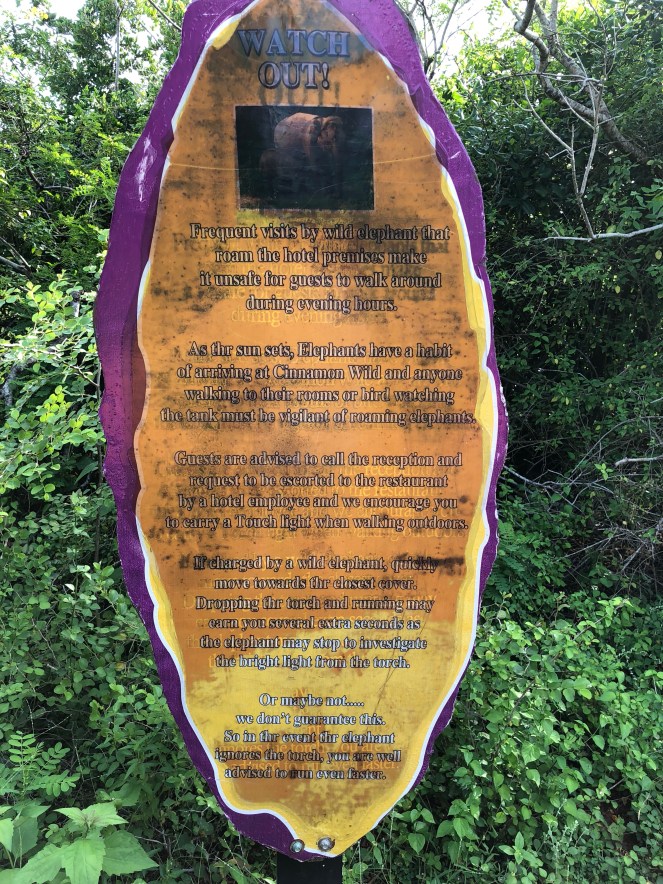 WATCH
OUT!
Frequent visits by wild elephant that
roam the hotel premises make
it unsafe for guests to walk around
during evening hours.
As thr sun sets, Elephants have a habit
of arriving at Cinnamon Wild and anyone
walking to their rooms or bird watching
the tank must be vigilant of roaming elephants.
Guests are advised to call the reception and
request to be escorted to the restaurant
by a hotel employee and we encourage you
to carry a Touch light when walking outdoors.
If charged by a wild elephant, quickly
move towards thr closest cover.
Dropping thr torch and running may
earn you several extra seconds as
the elephant may stop to investigate
the bright light from the torch.
Or maybe not.....
we don't guarantee this.
So in thr event thr elephant
ignores the torch, you are well
advised to run even faster.